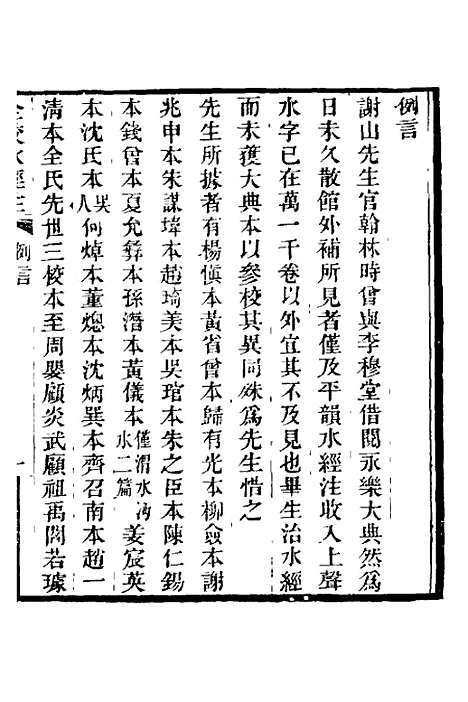 例言
謝山先生官翰林時曾與李穆堂借閱永樂大典然爲
日未久散館外補所見者僅及平韻水經注收入上聲
水字已在萬一千卷以外宜其不及見也畢生治水經
而未獲大典本以參校其異同殊爲先生惜之
先生所據者有楊愼本黃省曾本歸有光本柳僉本謝
兆申本朱謀㙔本趙琦美本吳琯本朱之臣本陳仁錫
本錢曾本夏允彝本孫潛本黃儀本僅渭水沔水二篇姜宸英
本沈氏本吳人何焯本董熜本沈炳巽本齊召南本趙一
淸本全氏先世三校本至周嬰顧炎武顧祖禹閻若璩
全校水經注 例言 一